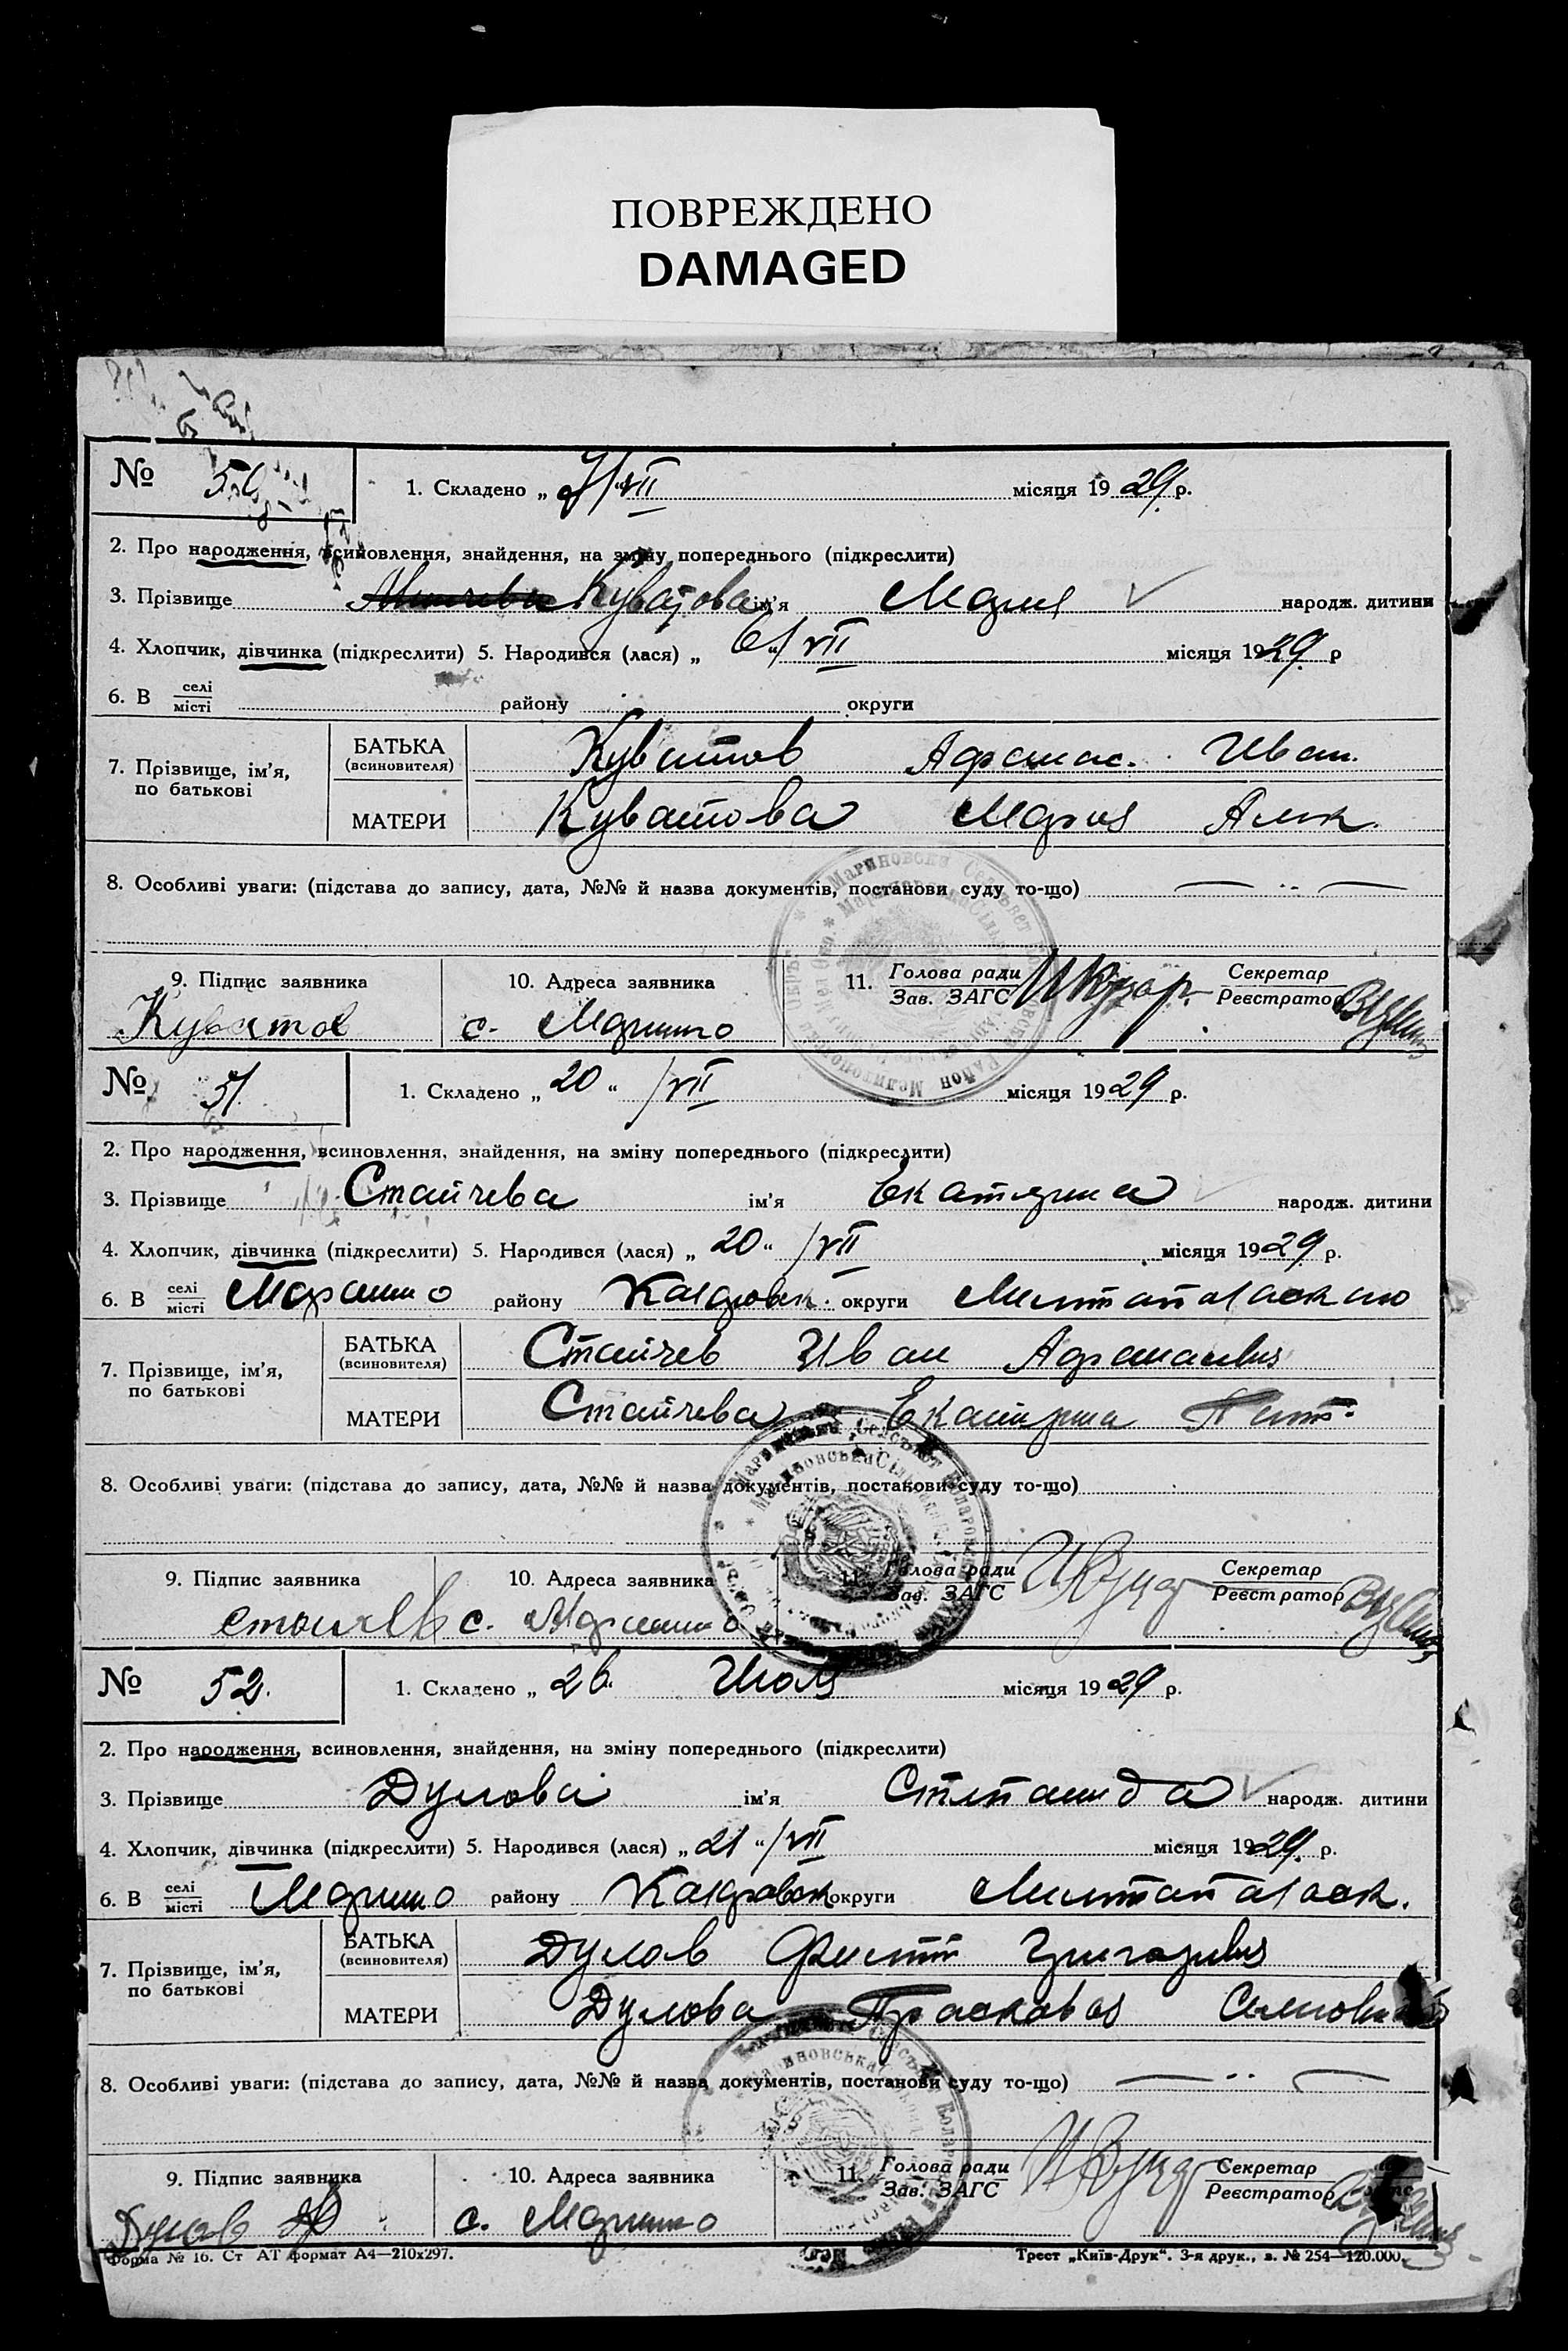 ПОВРЕЖДЕНО
DAMAGED
№ 50
1. Складено „ “ VII місяця 1929 р.
2. Про народження, всиновлення, знайдення, на зміну попереднього (підкреслити)
3. Прізвище Куватова ім'я Мария народж. дитини
4. Хлопчик, дівчинка (підкреслити) 5. Народився (лася) „ “ VII місяця 1929 р
6. В селі/місті району округи
7. Прізвище, ім'я, по батькові
БАТЬКА (всиновителя) Куватов Афанас. Иван.
МАТЕРИ Куватова Мария
8. Особливі уваги: (підстава до запису, дата, №№ й назва документів, постанови суду то-що) — .. —
9. Підпис заявника
10. Адреса заявника
11. Голова ради/Зав. ЗАГС
Секретар/Реєстратор
Куватов
с. Марино
№ 51
1. Складено „ 20 “ /VII місяця 1929 р.
2. Про народження, всиновлення, знайдення, на зміну попереднього (підкреслити)
3. Прізвище Стайчева ім'я Екатерина народж. дитини
4. Хлопчик, дівчинка (підкреслити) 5. Народився (лася) „ 20 “ /VII місяця 1929 р.
6. В селі/місті Марино району округи
7. Прізвище, ім'я, по батькові
БАТЬКА (всиновителя) Стайчев Иван Афанасьевич
МАТЕРИ Стайчева Екатерина
8. Особливі уваги: (підстава до запису, дата, №№ й назва документів, постанови суду то-що)
9. Підпис заявника
10. Адреса заявника
11. Голова ради/Зав. ЗАГС
Секретар/Реєстратор
с. Марино
№ 52.
1. Складено „ 26 “ Июля місяця 1929 р.
2. Про народження, всиновлення, знайдення, на зміну попереднього (підкреслити)
3. Прізвище Дулова ім'я Степанида народж. дитини
4. Хлопчик, дівчинка (підкреслити) 5. Народився (лася) „ 21 “ /VII місяця 1929 р.
6. В селі/місті Марино району округи
7. Прізвище, ім'я, по батькові
БАТЬКА (всиновителя) Дулов Филипп Григорьевич
МАТЕРИ Дулова Прасковья
8. Особливі уваги: (підстава до запису, дата, №№ й назва документів, постанови суду то-що) — .. —
9. Підпис заявника
10. Адреса заявника
11. Голова ради/Зав. ЗАГС
Секретар/Реєстратор
Дулов
с. Марино
Форма № 16. Ст АТ формат А4—210x297.
Трест „Київ-Друк“. 3-я друк., з. № 254—120.000.